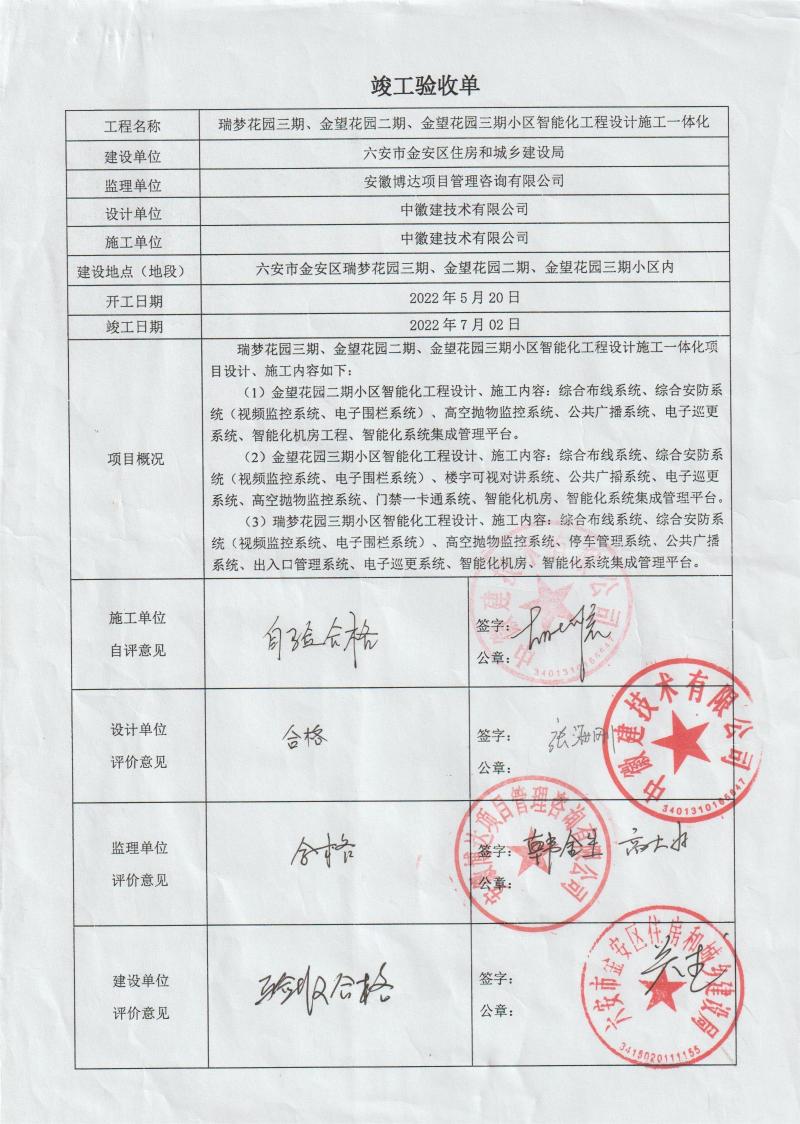 竣工验收单
工程名称 瑞梦花园三期、金望花园二期、金望花园三期小区智能化工程设计施工一体化
建设单位 六安市金安区住房和城乡建设局
监理单位 安徽博达项目管理咨询有限公司
设计单位 中徽建技术有限公司
施工单位 中徽建技术有限公司
建设地点（地段） 六安市金安区瑞梦花园三期、金望花园二期、金望花园三期小区内
开工日期 2022 年 5 月 20 日
竣工日期 2022 年 7 月 02 日
项目概况
瑞梦花园三期、金望花园二期、金望花园三期小区智能化工程设计施工一体化项
目设计、施工内容如下：
（1）金望花园二期小区智能化工程设计、施工内容：综合布线系统、综合安防系
统（视频监控系统、电子围栏系统）、高空抛物监控系统、公共广播系统、电子巡更
系统、智能化机房工程、智能化系统集成管理平台。
（2）金望花园三期小区智能化工程设计、施工内容：综合布线系统、综合安防系
统（视频监控系统、电子围栏系统）、楼宇可视对讲系统、公共广播系统、电子巡更
系统、高空抛物监控系统、门禁一卡通系统、智能化机房、智能化系统集成管理平台。
（3）瑞梦花园三期小区智能化工程设计、施工内容：综合布线系统、综合安防系
统（视频监控系统、电子围栏系统）、高空抛物监控系统、停车管理系统、公共广播
系统、出入口管理系统、电子巡更系统、智能化机房、智能化系统集成管理平台。
施工单位
自评意见
自验合格
签字：
公章：
中徽建技术有限公司
3401310165647
设计单位
评价意见
合格
签字： 张海刚
公章：
中徽建技术有限公司
3401310165647
监理单位
评价意见
合格
签字： 韩金生 高大水
公章：
安徽博达项目管理咨询有限公司
建设单位
评价意见
验收合格
签字：
公章：
六安市金安区住房和城乡建设局
3415020111155